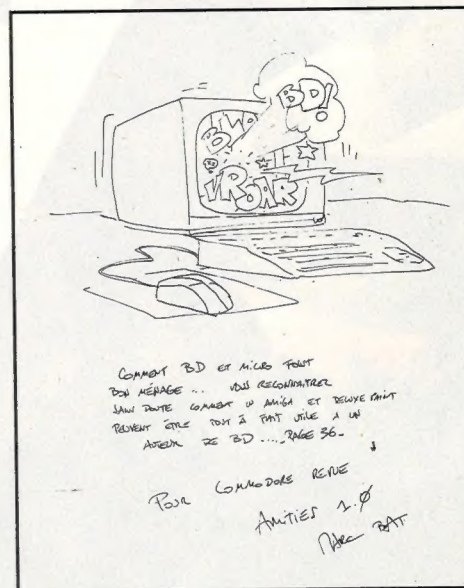 BD!
VROAR
COMMENT BD ET MICRO FONT
BON MÉNAGE ... VOUS RECONNAITREZ
SANS DOUTE COMMENT UN AMIGA ET DELUXE PAINT
PEUVENT ÊTRE TOUT À FAIT UTILE A UN
AUTEUR DE BD .... PAGE 36.
POUR COMMODORE REVUE
AMITIÉS 1.0
MARC BAT